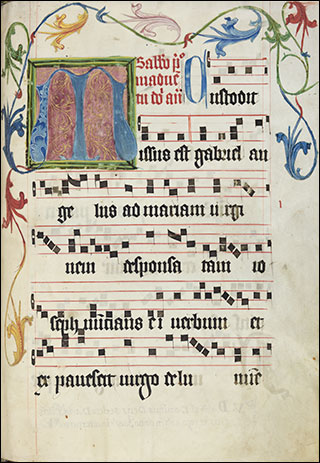 Sabbo p͏̊
in aduē
Custodit
Missus est gabriel an
ge lus ad mariam uirgi
nem desponsa tam io
seph nūcians ei uerbum et
ex pauescit uirgo de lu mīe